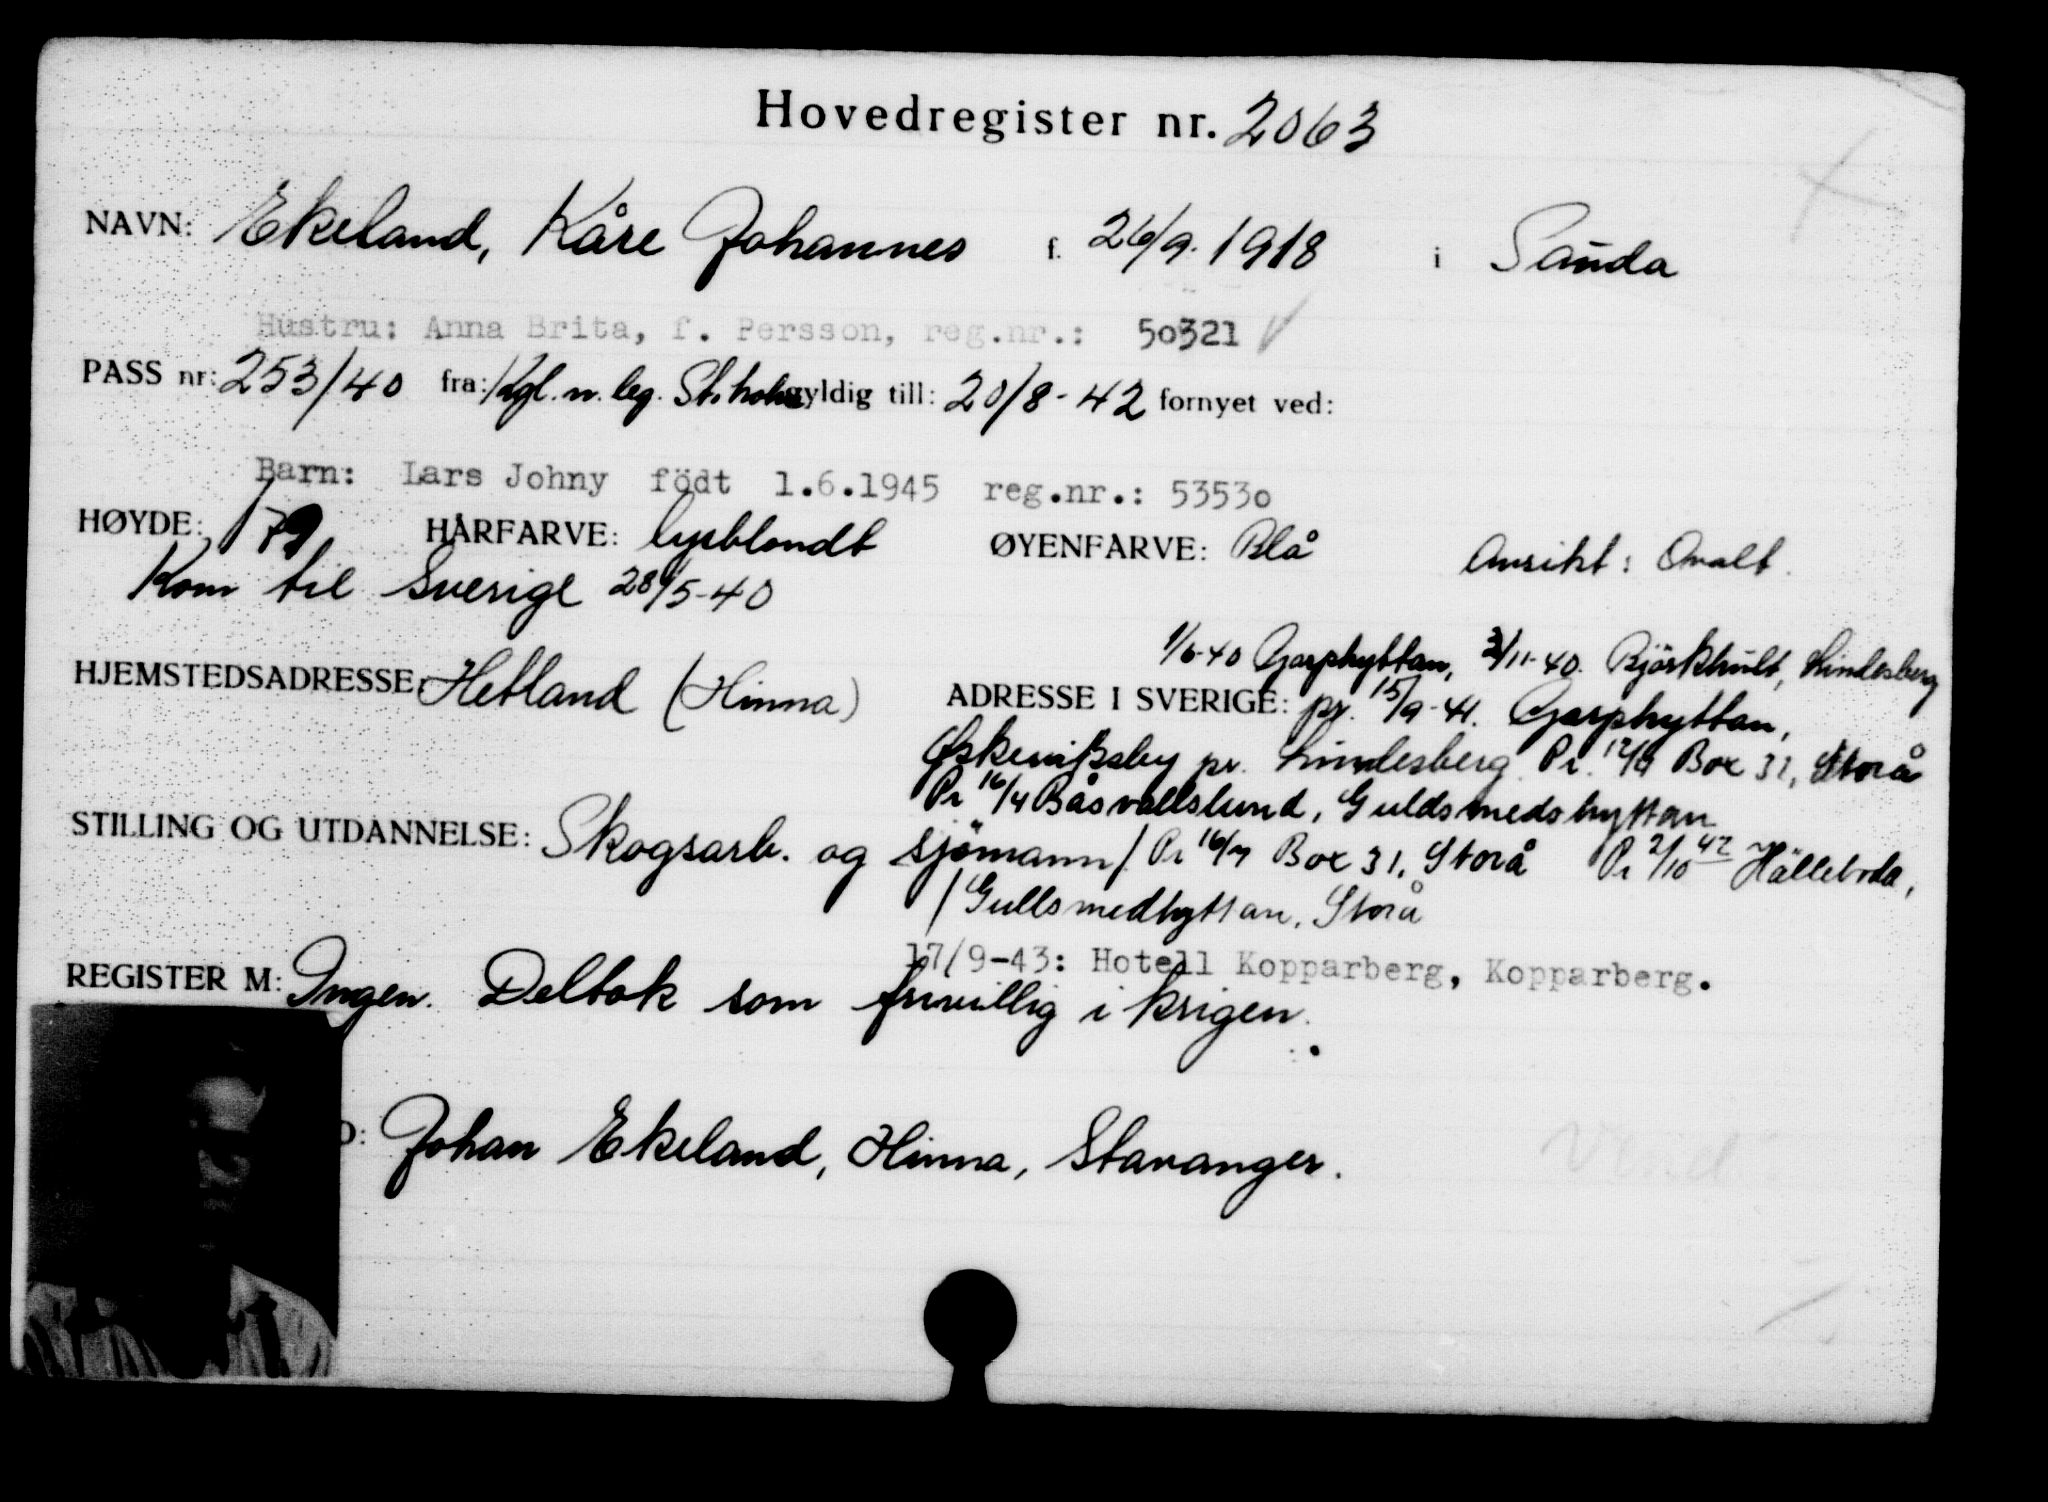 Hovedregister nr. 2063
NAVN: Ekeland, Kåre Johannes f. 26/9. 1918 i Sauda
Hustru: Anna Brita, f. Persson, reg.nr.: 50321
PASS nr: 253/40 fra: Kgl. n. leg. St.holm gyldig till: 20/8-42 fornyet ved:
Barn: Lars Johny födt 1.6.1945 reg.nr.: 53530
HØYDE: 179 HÅRFARVE: lysblondt ØYENFARVE: Blå Ansikt: Ovalt.
Kom til Sverige 28/5-40
1/6-40 Garphyttan, 2/11-40. Björkhult, Lindesberg
HJEMSTEDSADRESSE: Hetland (Hinna) ADRESSE I SVERIGE: pr. 15/9-41. Garphyttan,
pr. Lindesberg Pr. Box 31, Storå
Pr 16/4 Båsvallslund, Guldsmedshyttan
STILLING OG UTDANNELSE: Skogsarb. og sjömann / Pr 16/7 Box 31, Storå Pr 2/10 42 Hälleboda,
/ Gullsmedhyttan, Storå
17/9-43: Hotell Kopparberg, Kopparberg.
REGISTER M: Ingen. Deltok som frivillig i krigen.
O: Johan Ekeland, Hinna, Stavanger.
Vend